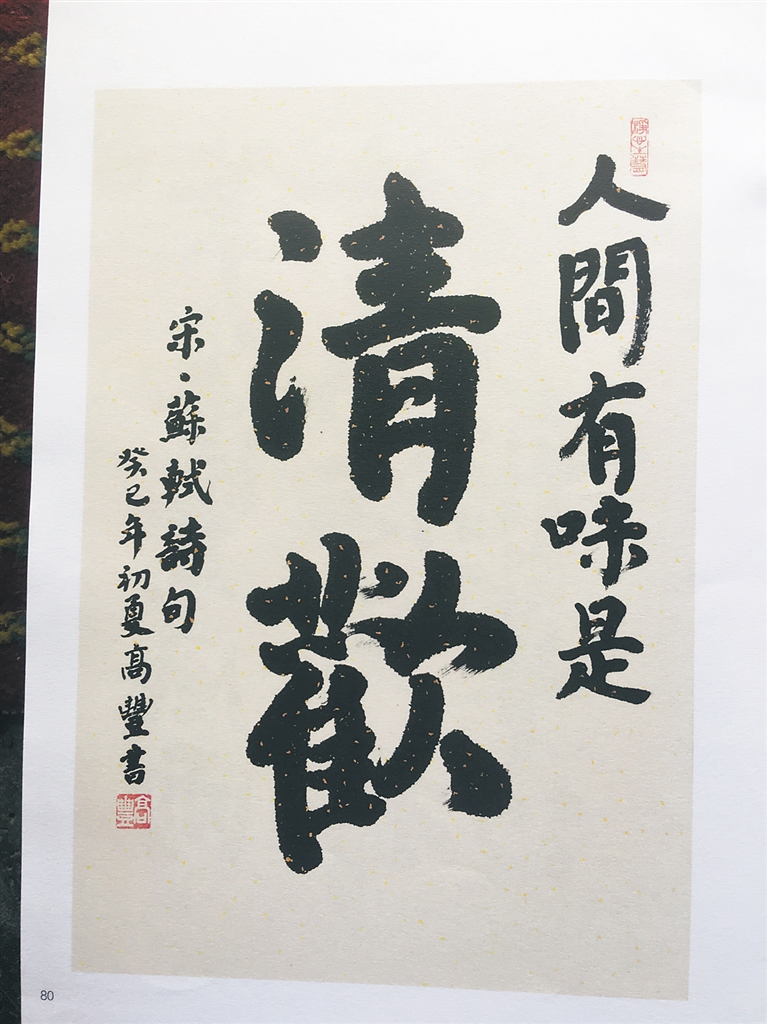 人間有味是
清歡
宋·蘇軾詩句
癸巳年初夏高豐書
高豐
80